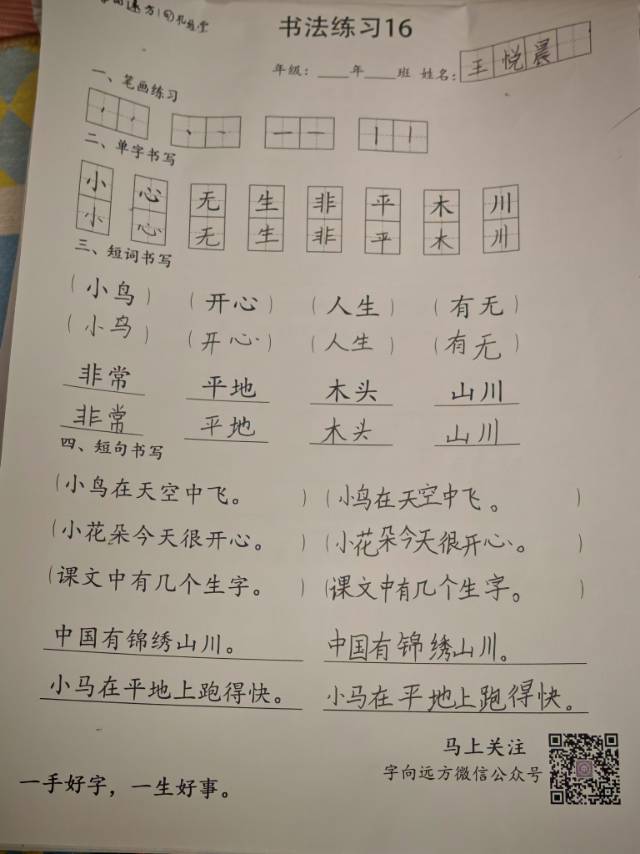 书法练习16
年级：____年____班 姓名：王悦晨
一、笔画练习
二、单字书写
小 心 无 生 非 平 木 川
小 心 无 生 非 平 木 川
三、短词书写
（小鸟） （开心） （人生） （有无）
（小鸟） （开心） （人生） （有无）
非常 平地 木头 山川
非常 平地 木头 山川
四、短句书写
（小鸟在天空中飞。 ）（小鸟在天空中飞。 ）
（小花朵今天很开心。 ）（小花朵今天很开心。 ）
（课文中有几个生字。 ）（课文中有几个生字。 ）
中国有锦绣山川。 中国有锦绣山川。
小马在平地上跑得快。 小马在平地上跑得快。
马上关注
字向远方微信公众号
一手好字，一生好事。